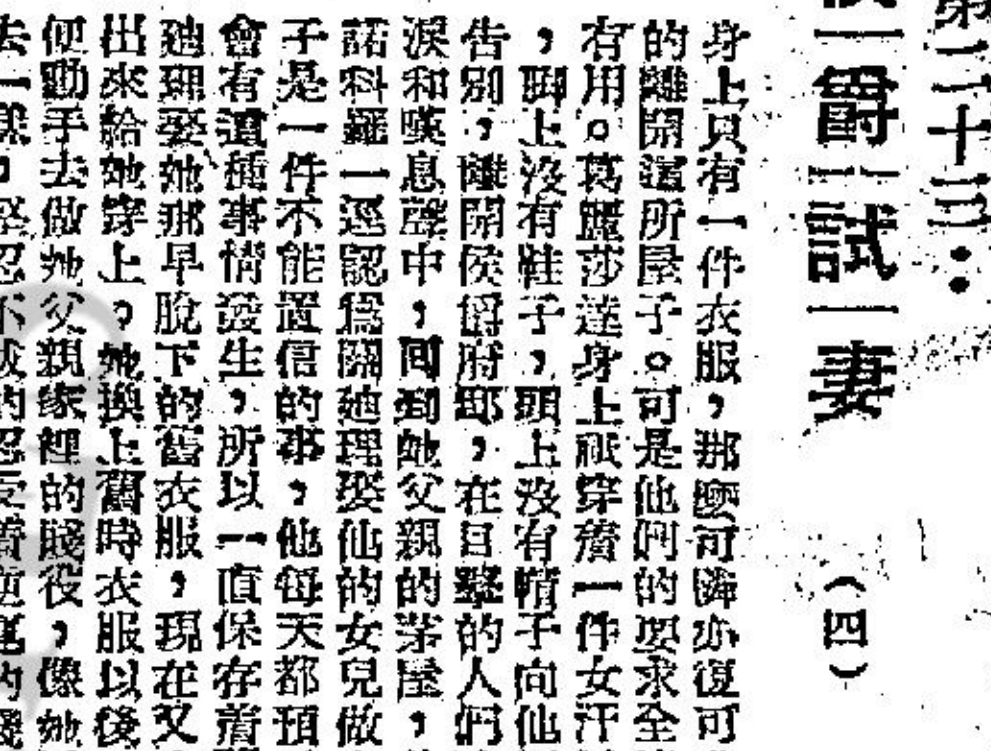 第二十三：
爵試妻（四）
身上只有一件衣服，那麼可憐亦復可
的離開這所屋子。可是他們的要求全
有用。葛麗莎達身上祇穿着一件女汗
，脚上沒有鞋子，頭上沒有帽子向他
告別，離開侯爵府邸，在目擊的人們
淚和嘆息聲中，回到她父親的茅屋，
諾科羅一逕認爲關她理娶他的女兒做
子是一件不能置信的事，他每天都預
會有這種事情發生，所以一直保存着
她理娶她那早脫下的舊衣服，現在又
出來給她穿上。她換上舊時衣服以後
便動手去做她父親家裡的賤役，像她
去一樣，堅忍不拔的忍受着